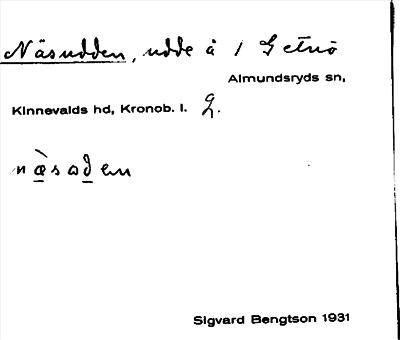 Näsudden, udde å 1 Getnö
Almundsryds sn,
Kinnevalds hd, Kronob. l. G.
næ̀saden
Sigvard Bengtson 1931